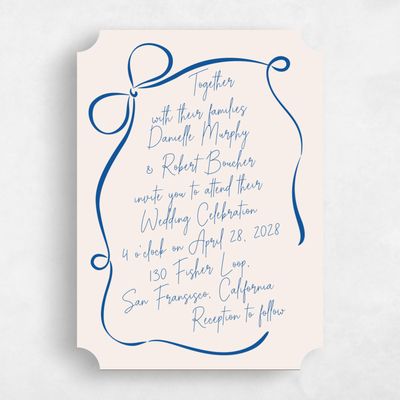 Together
with their families
Danielle Murphy
& Robert Boucher
invite you to attend their
Wedding Celebration
4 o'clock on April 28, 2028
130 Fisher Loop,
San Fransisco, California
Reception to follow